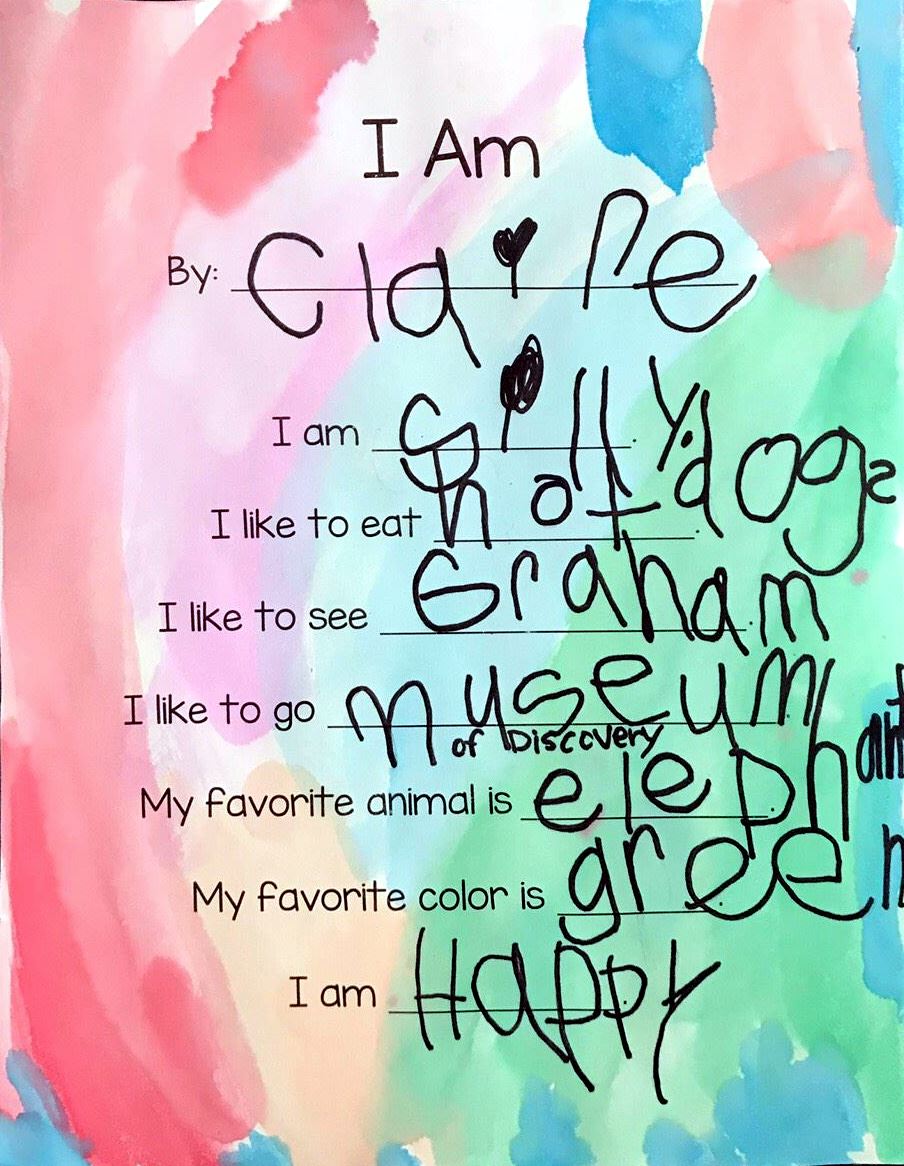 I Am
By: Claire
I am silly.
I like to eat hot dogs.
I like to see Graham.
I like to go museum
of Discovery
My favorite animal is elephant.
My favorite color is green
I am Happy